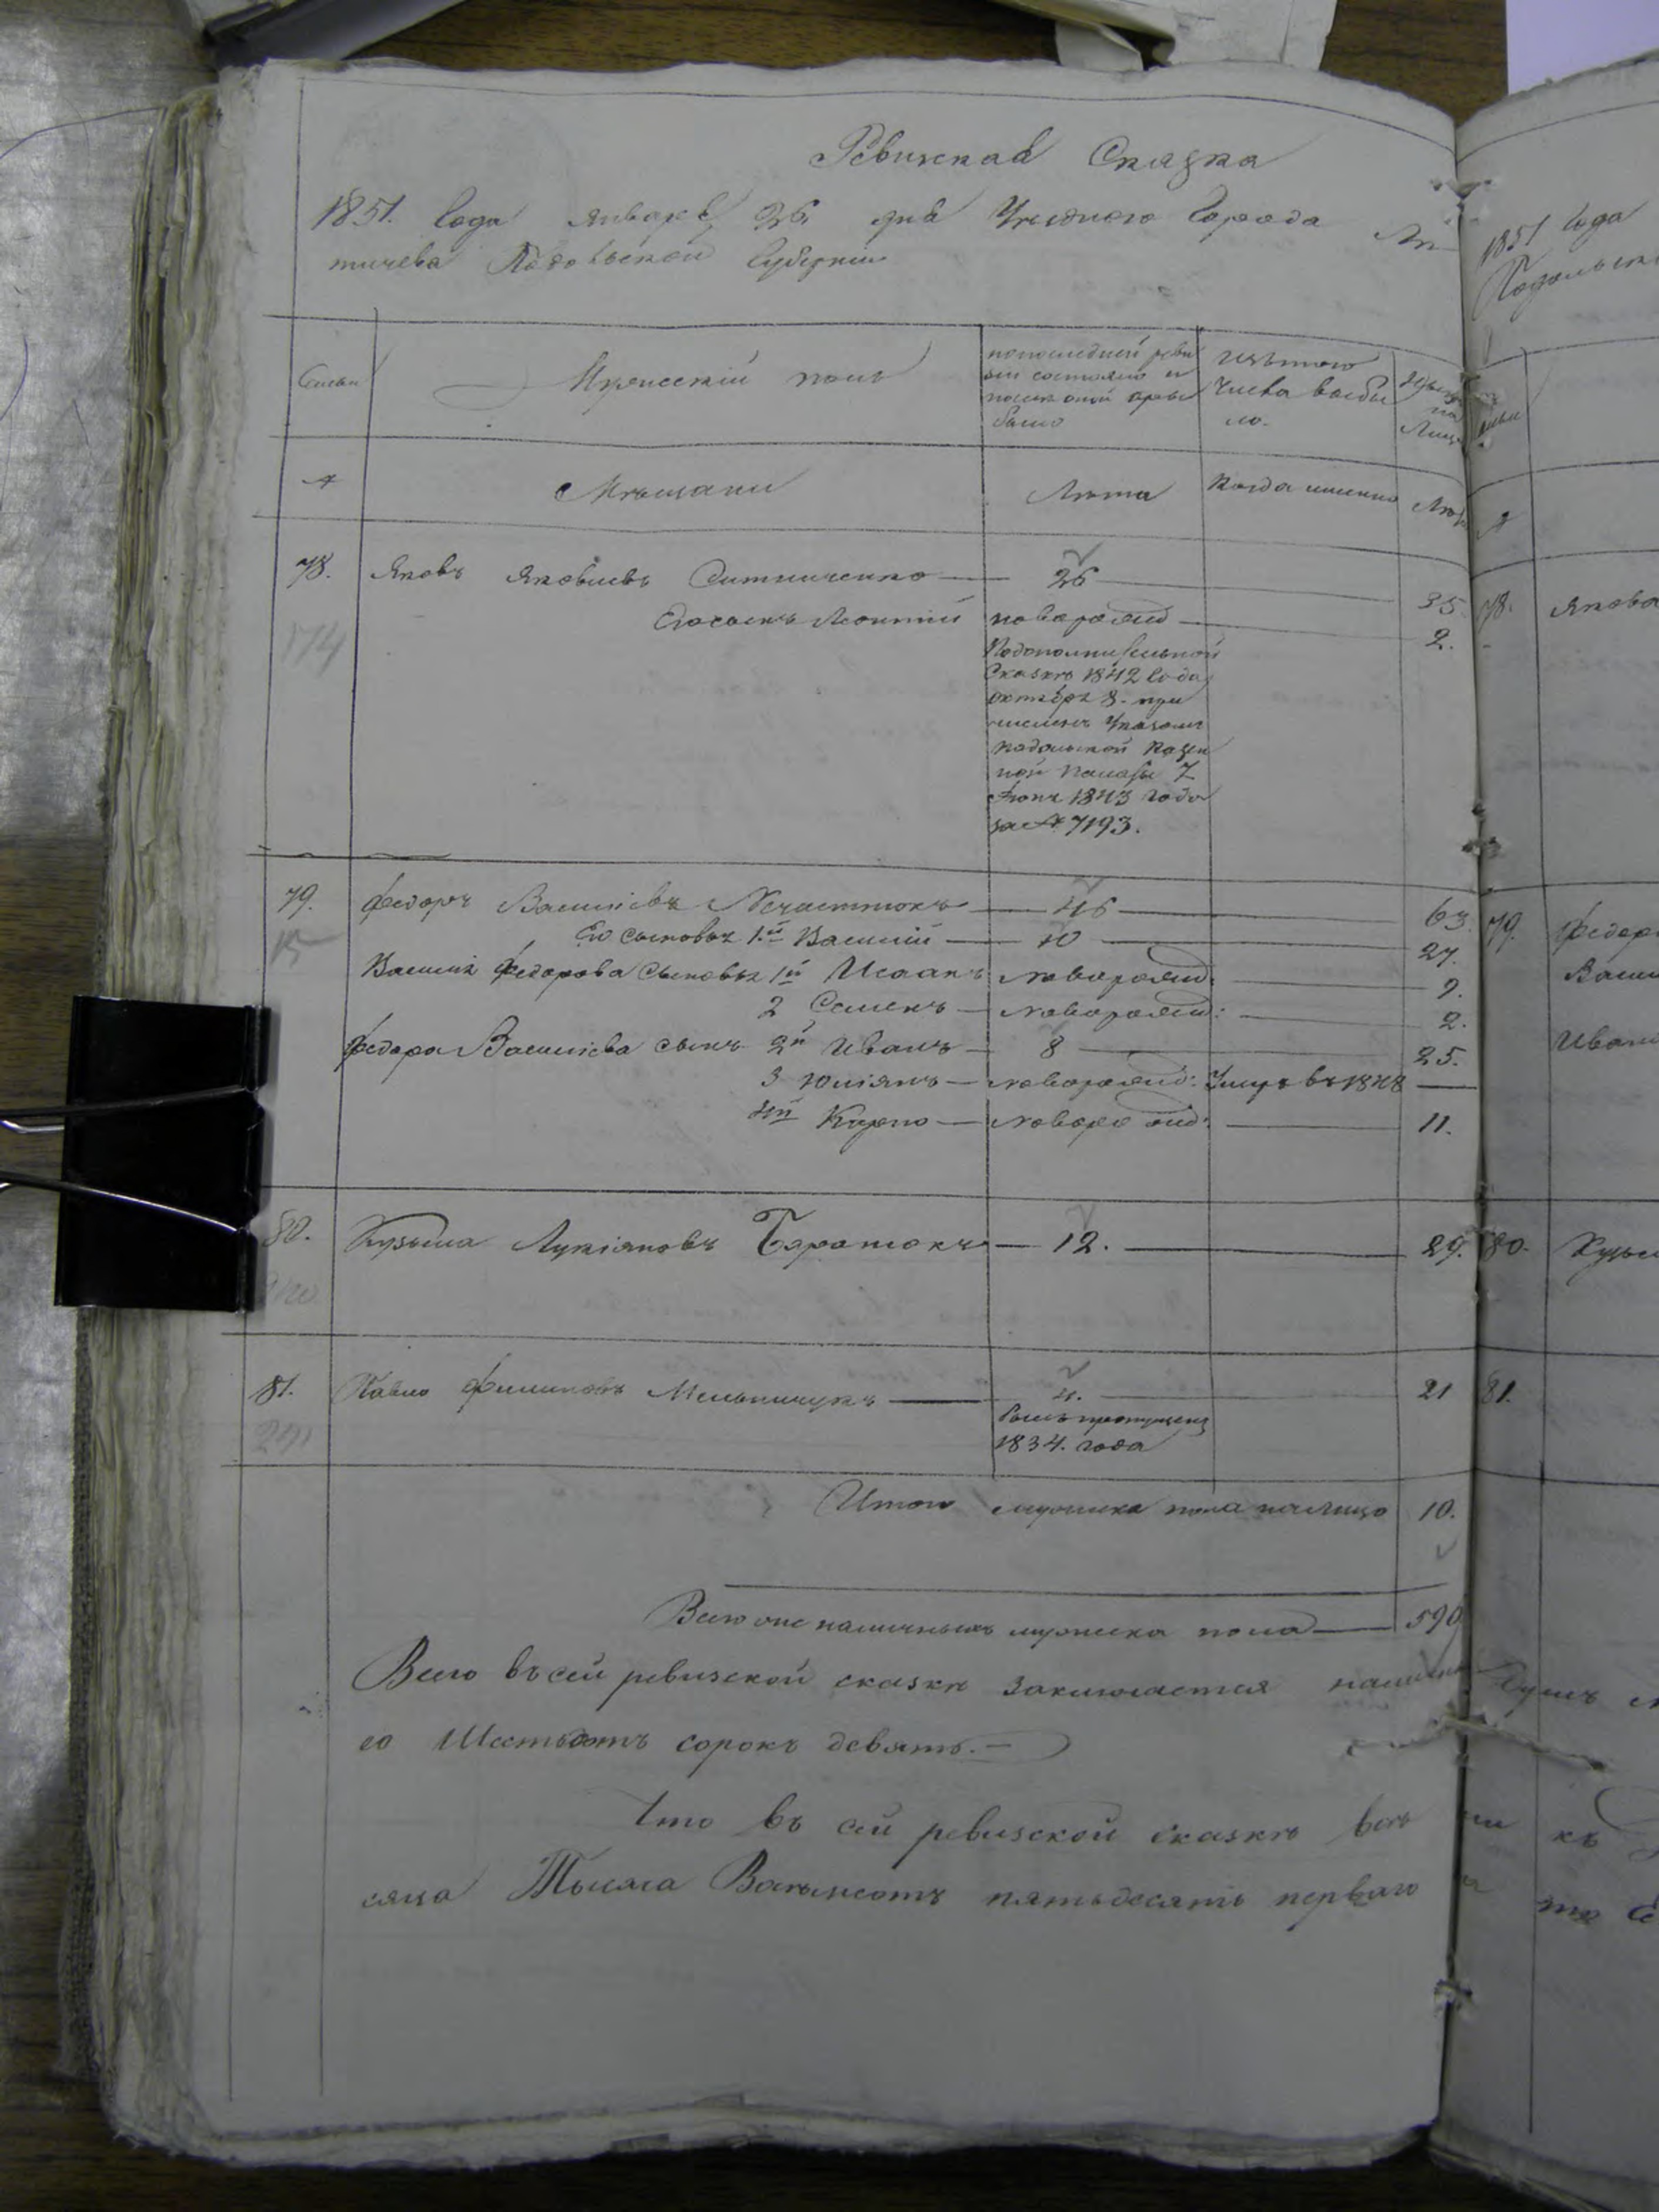 Ревизская Сказка
1851. Года Января 26. дня Уезднаго Города Ле-
тичева Подольской Губернии
Семьи
Мужескiй полъ
по последней реви
зiи состояло и
после оной при
было
Изъ того
числа выбы
ло.
Ныне
на
Лице
№
Мещани
Лета
Когда именно
Лета
78.
Яковъ Яковлевъ Ситниченко
26
35.
Его сынъ Леонтiй
новорожд
2.
174
По дополнительной
Сказке 1842 Года
октября 8. при
численъ Указомъ
Подольской Казен
ной Палаты 7
Iюня 1843 года
за № 7193.
79.
Федоръ Василiевъ
46
63.
15
Его сыновья 1.й Василiй
10
27.
Василiя Федорова сыновья 1й Исаакъ
новорожд:
9.
2 Семенъ
новорожд:
2.
Федора Василiева сынъ 2й Иванъ
8
25.
3 Юлiянъ
новорожд:
Умеръ въ 1848
4й Карпо
новорожд:
11.
80.
Кузьма Лукiяновъ
12.
29.
81.
Павло Филиповъ Мельничукъ
4.
21
былъ пропущенъ
1834. года
Итого мужеска пола на лицо
10.
Всего оне наличныхъ мужеска пола
590
Всего въ сей ревизской сказке заключается
го Шестьсотъ сорокъ девять.
Что въ сей ревизской сказке все
сяца Тысяча Восемьсотъ пятьдесятъ перваго
1851 Года
Подольск
№
78.
Якова
79.
Федор
Васи
Иван
80.
Кузь
81.